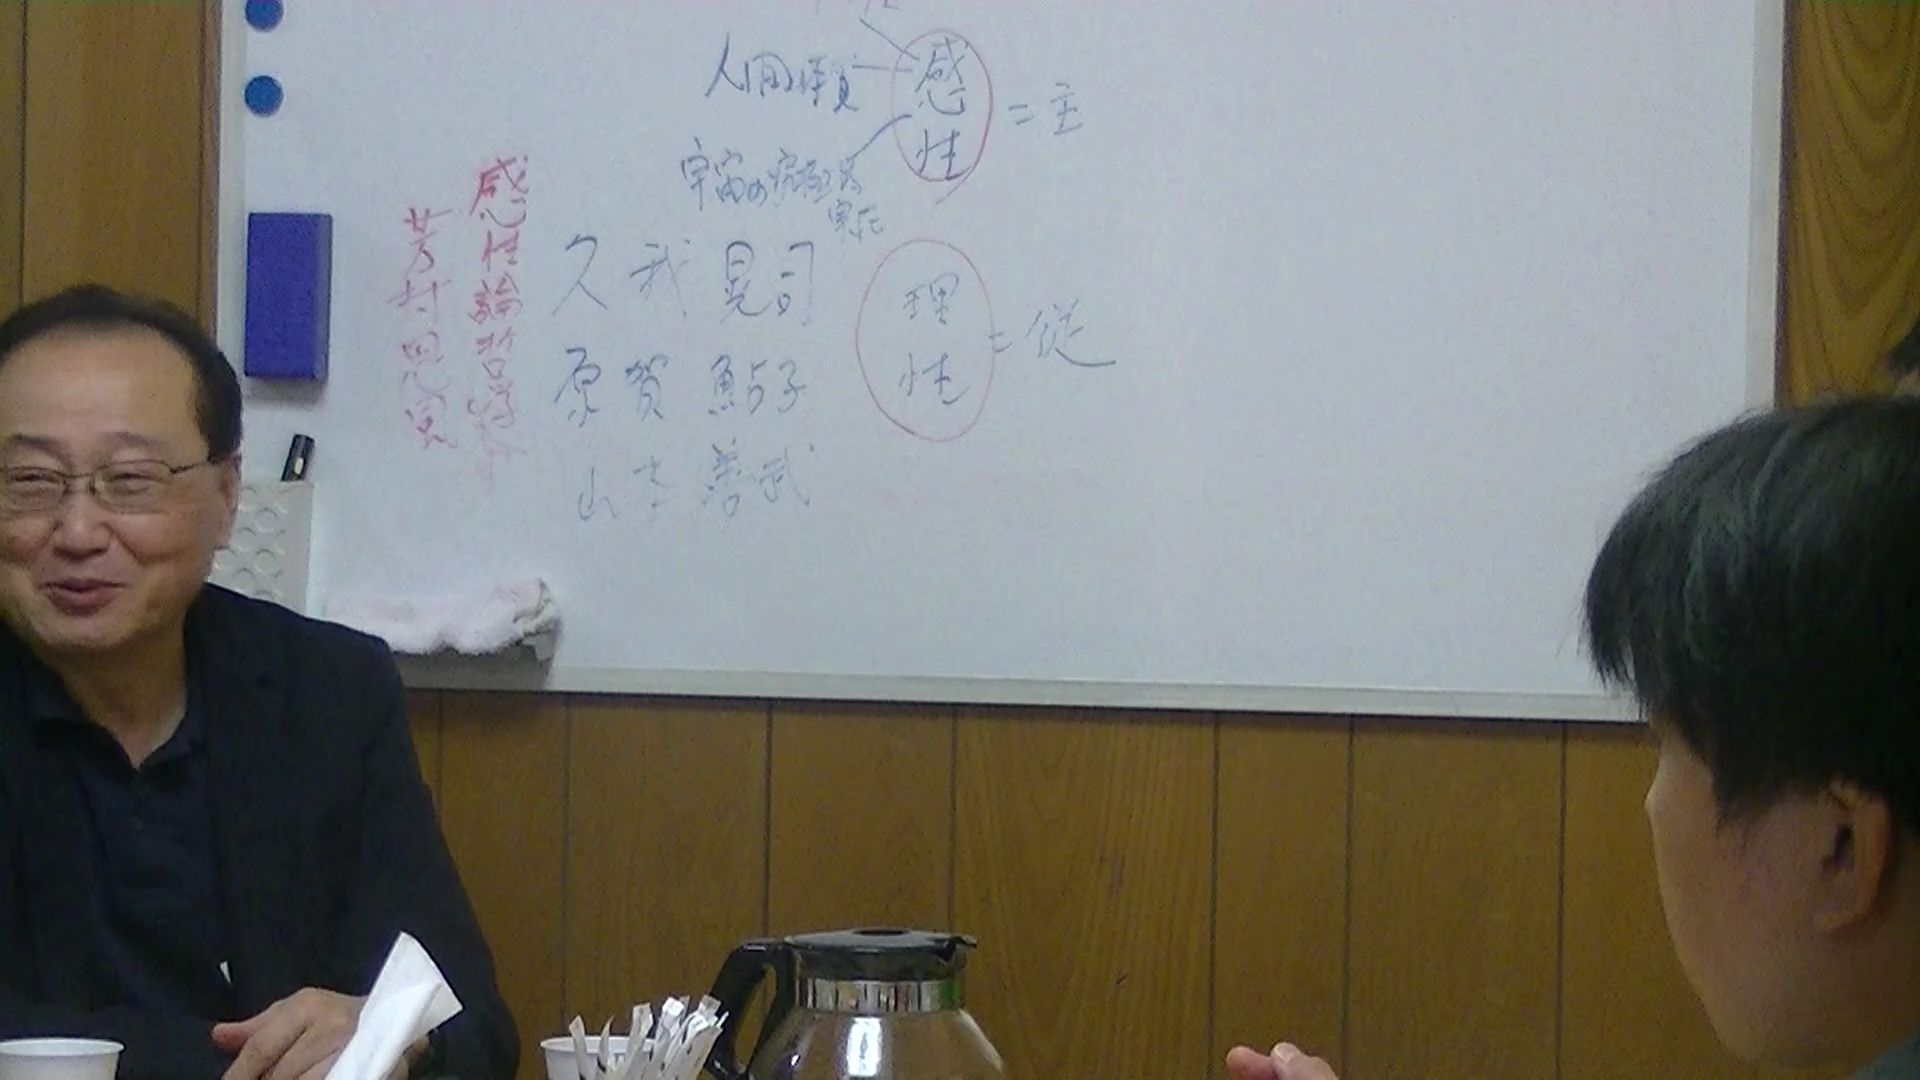 人間の本質
感性 = 主
宇宙の究極の
実在
感性論哲学
芳村思風
久我 晃司
原賀 鮎子
理性 = 従
山本 善武